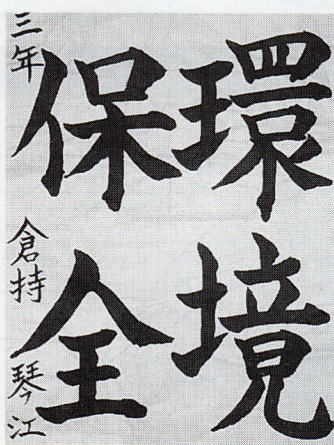 環境
保全
三年 倉持 琴江